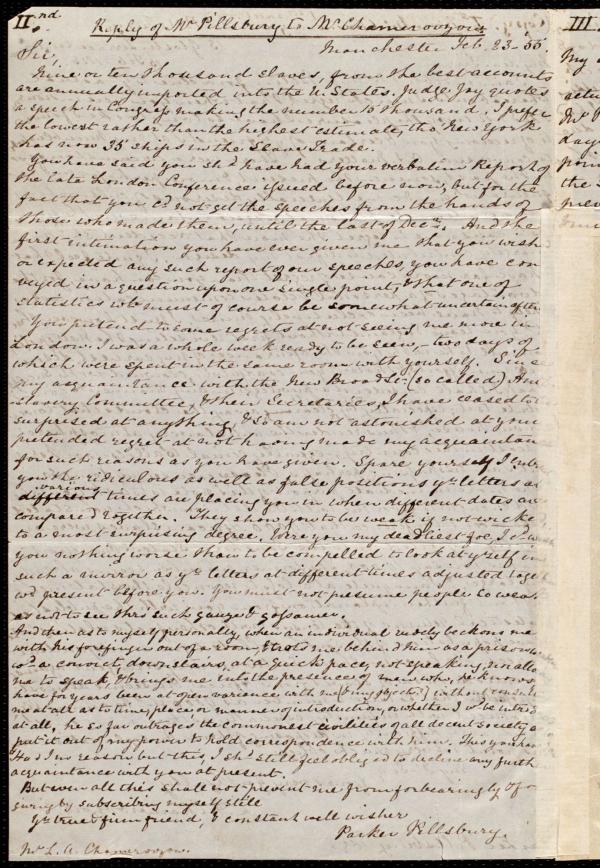 II.nd Reply of Mr Pillsbury to Mr Chamerovzow
Manchester Feb. 23-'55.
Sir,
Nine or ten thousand slaves, from the best accounts
are annually imported into the U. States. Judge Jay quotes
a speech in Congress making the number 15 thousand. I prefer
the lowest rather than the highest estimate, tho' New York
has now 35 ships in the Slave Trade.
You have said you shd have had your verbatim Report of
the late London Conference issued before now, but for the
fact that you cd not get the speeches from the hands of
those who made them, until the last of Decr. And the
first intimation you have ever given me that you wish
or expected any such report of our speeches, you have con
veyed in a question upon one single point, & that one of
statistics wh must of course be somewhat uncertain often
You pretend to some regrets at not seeing me more in
London. I was a whole week ready to be seen,- two days of
which were spent in the same room with yourself. Since
my acquaintance with the New Broad St. (so called) Anti
slavery Committee, & their Secretaries, I have ceased to be
surprised at anything, & so am not astonished at your
pretended regret at not having made my acquaintan
for such reasons as you have given. Spare yourself I entre
you the ridiculous as well as false positions yr letters at
various
different times are placing you in when different dates are
compared together. They show you to be weak if not wicke
to a most surprising degree. Were you my deadliest foe, I cd wish
you nothing worse than to be compelled to look at yrself in
such a mirror as yr letters at different times adjusted toget
wd present before you. You must not presume people so weak
as not to see thro' such gauze & gossamer.
And then as to myself personally, when an individual rudely beckons me
with his forefinger out of a room, & trots me behind him as a prisoner
wd a convict, down stairs, at a quick pace, not speaking, nor allo
me to speak, & brings me into the presences of men who, he knows
have for years been at open variance with me (& my objects) without consult
me at all as to time, place or manner of introduction, or whether I wd be introd
at all, he so far outrages the commonest civilities of all decent society as
put it out of my power to hold correspondence with him. This you have
Had I no reason but this, I shd still feel obliged to decline any furth
acquaintance with you at present.
But even all this shall not prevent me from forbearing
by subscribing myself still
Yr true & firm friend, & constant well wisher
Parker Pillsbury.
Mr L. A. Chamerovzow.
III.
My
actu
Mr P
days
poin
the
prev